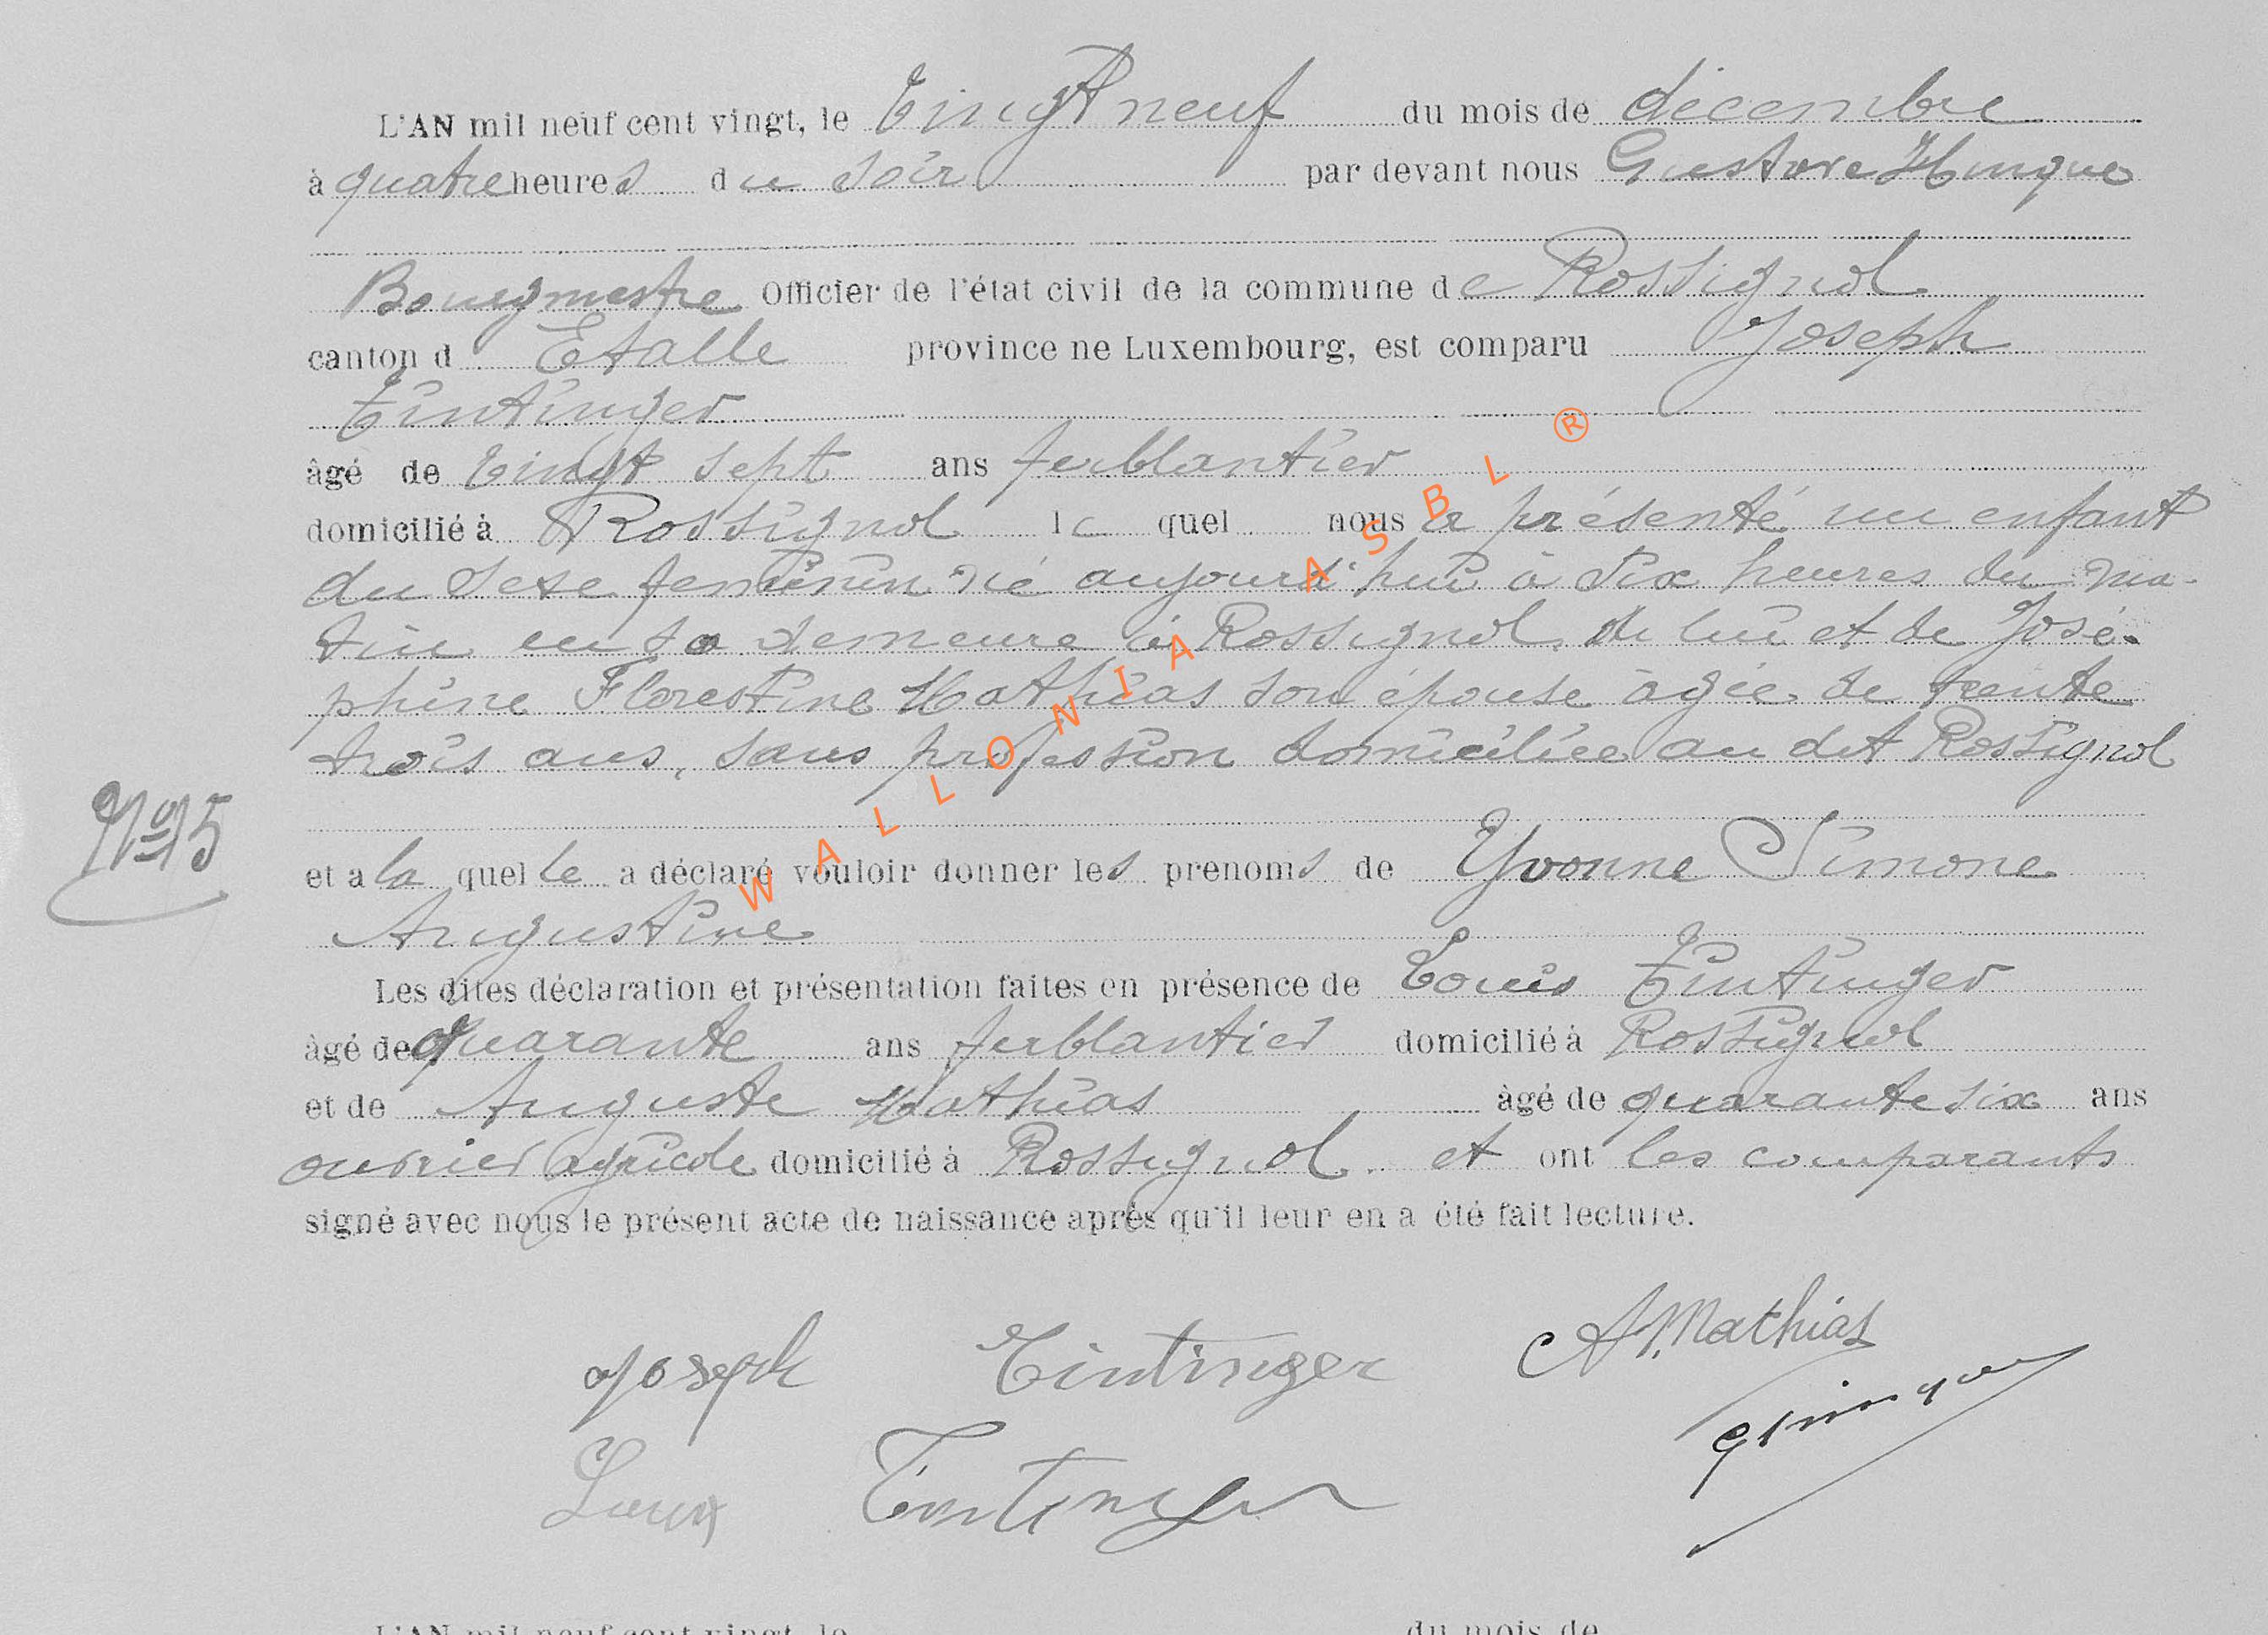 L'AN mil neuf cent vingt, le Vingt neuf du mois de décembre
à quatre heures du soir par devant nous Gustave Hinque
Bourgmestre Officier de l'état civil de la commune de Rossignol
canton d Etalle province ne Luxembourg, est comparu Joseph
Tintinger
âgé de vingt sept ans ferblantier
domicilié à Rossignol le quel nous a présenté un enfant
du sexe feminin né aujourd'hui à six heures du ma-
tin en sa demeure à Rossignol de lui et de José-
phine Florestine Mathias son épouse âgée de trente
trois ans, sans profession domiciliée au dit Rossignol
N° 15
et a la quelle a déclaré vouloir donner les prenoms de Yvonne Simone
Augustine
Les dites déclaration et présentation faites en présence de Louis Tintinger
àgé de quarante ans ferblantier domicilié à Rossignol
et de Auguste Mathias àgé de quarante six ans
ouvrier agricole domicilié à Rossignol. et ont les comparants
signé avec nous le présent acte de naissance après qu'il leur en a été fait lecture.
Joseph Tintinger A. Mathias
GHinque
Louis Tintinger
L'AN mil neuf cent vingt, le du mois de
WALLONIA ASBL ®